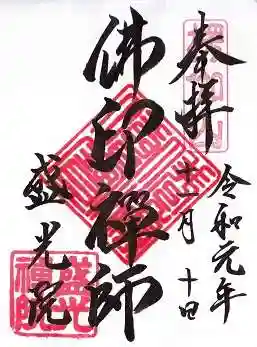 奉拝
令和元年
十一月十日
佛印禅師
盛光院